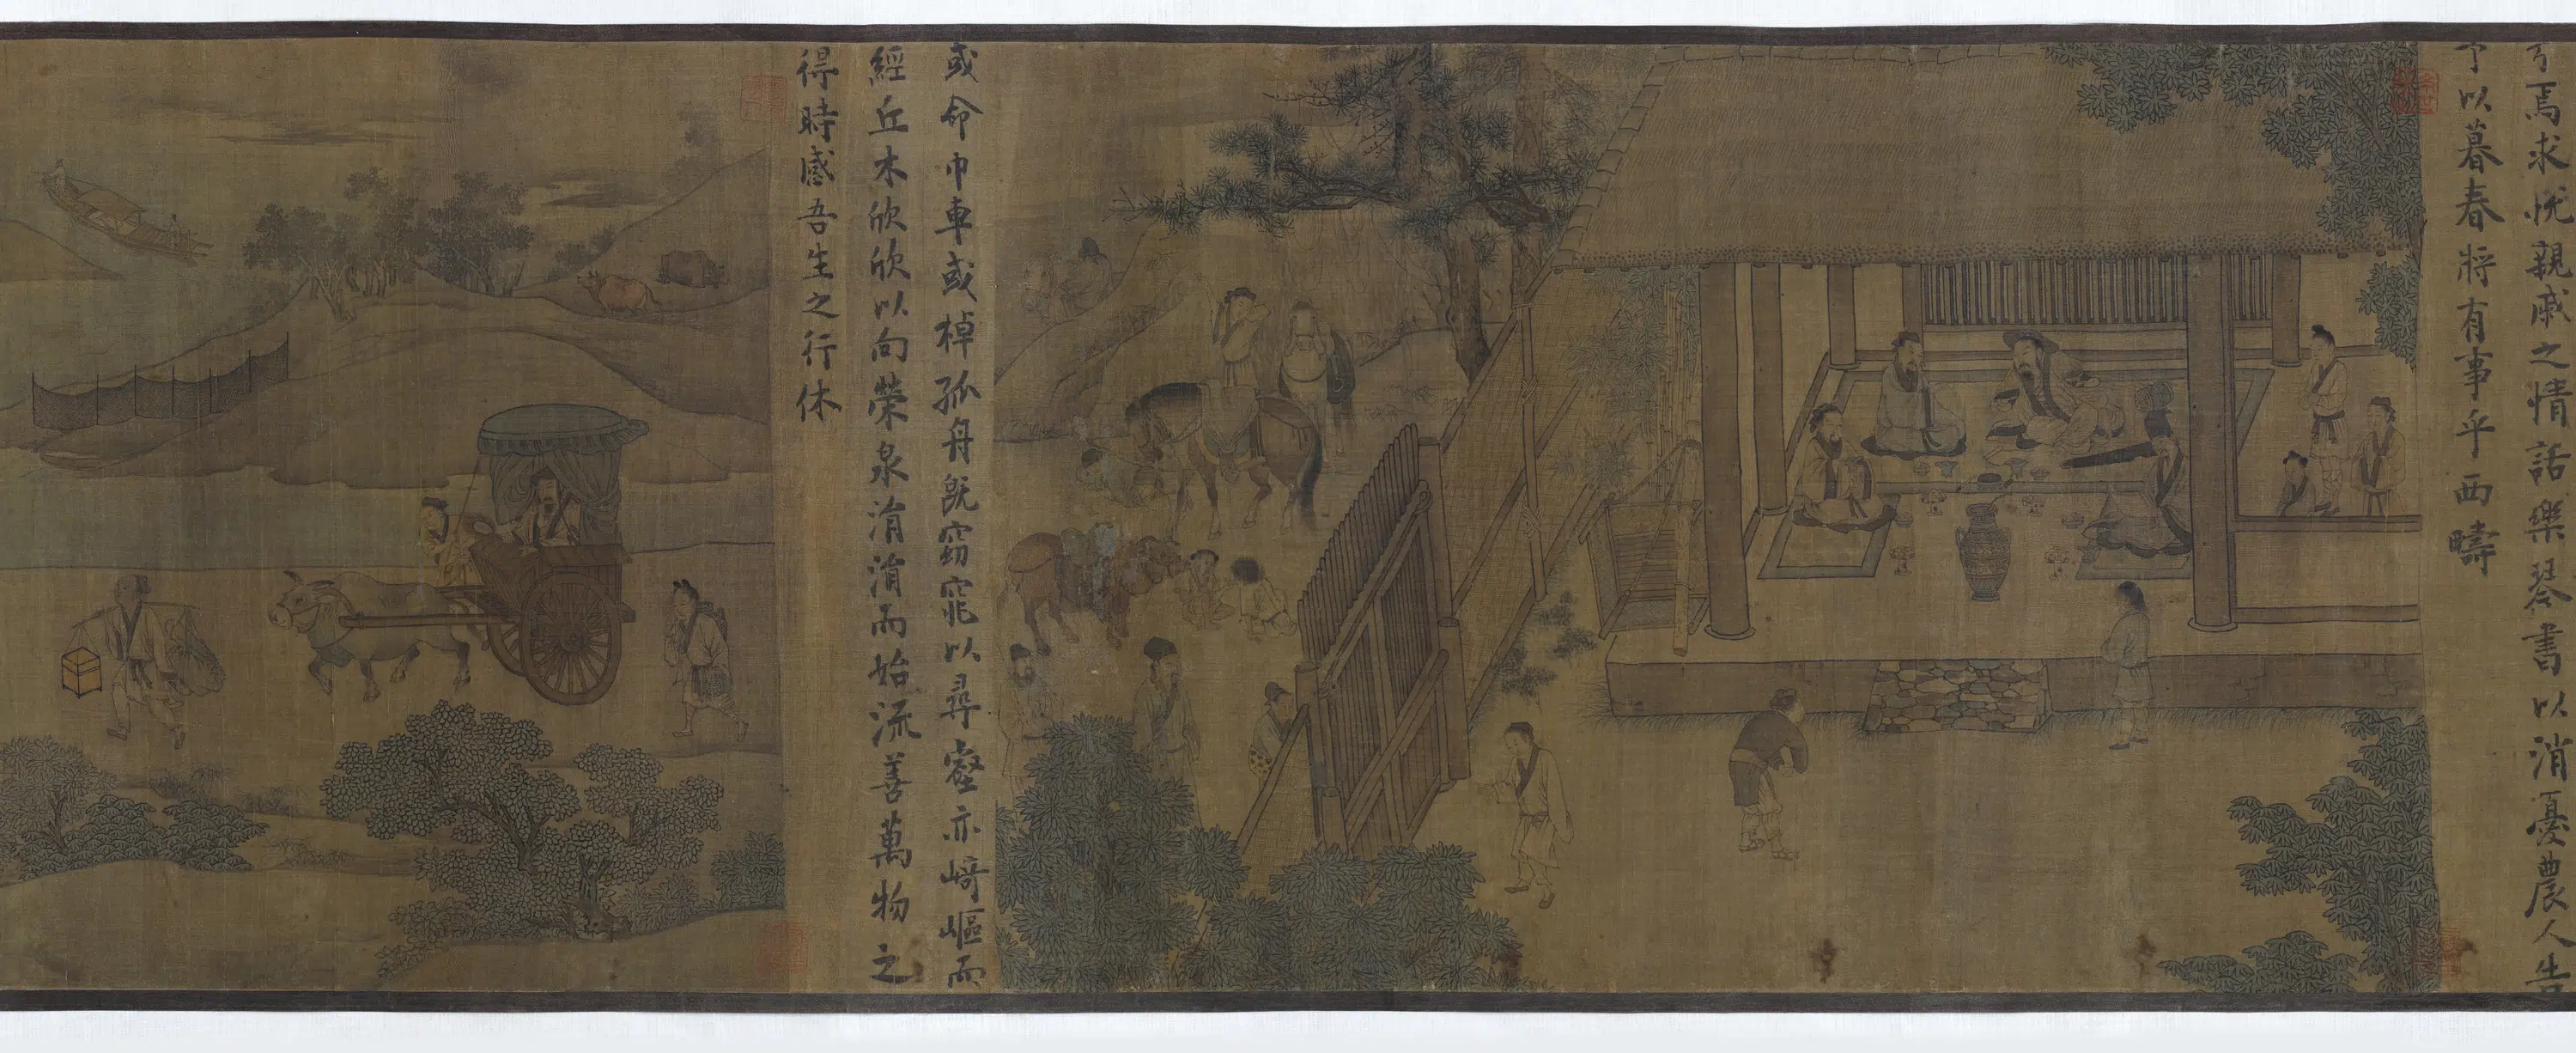 兮焉求悅親戚之情話樂琴書以消憂農人告
予以暮春將有事乎西疇
或命巾車或棹孤舟既窈窕以尋壑亦崎嶇而
經丘木欣欣以向榮泉涓涓而始流善萬物之
得時感吾生之行休